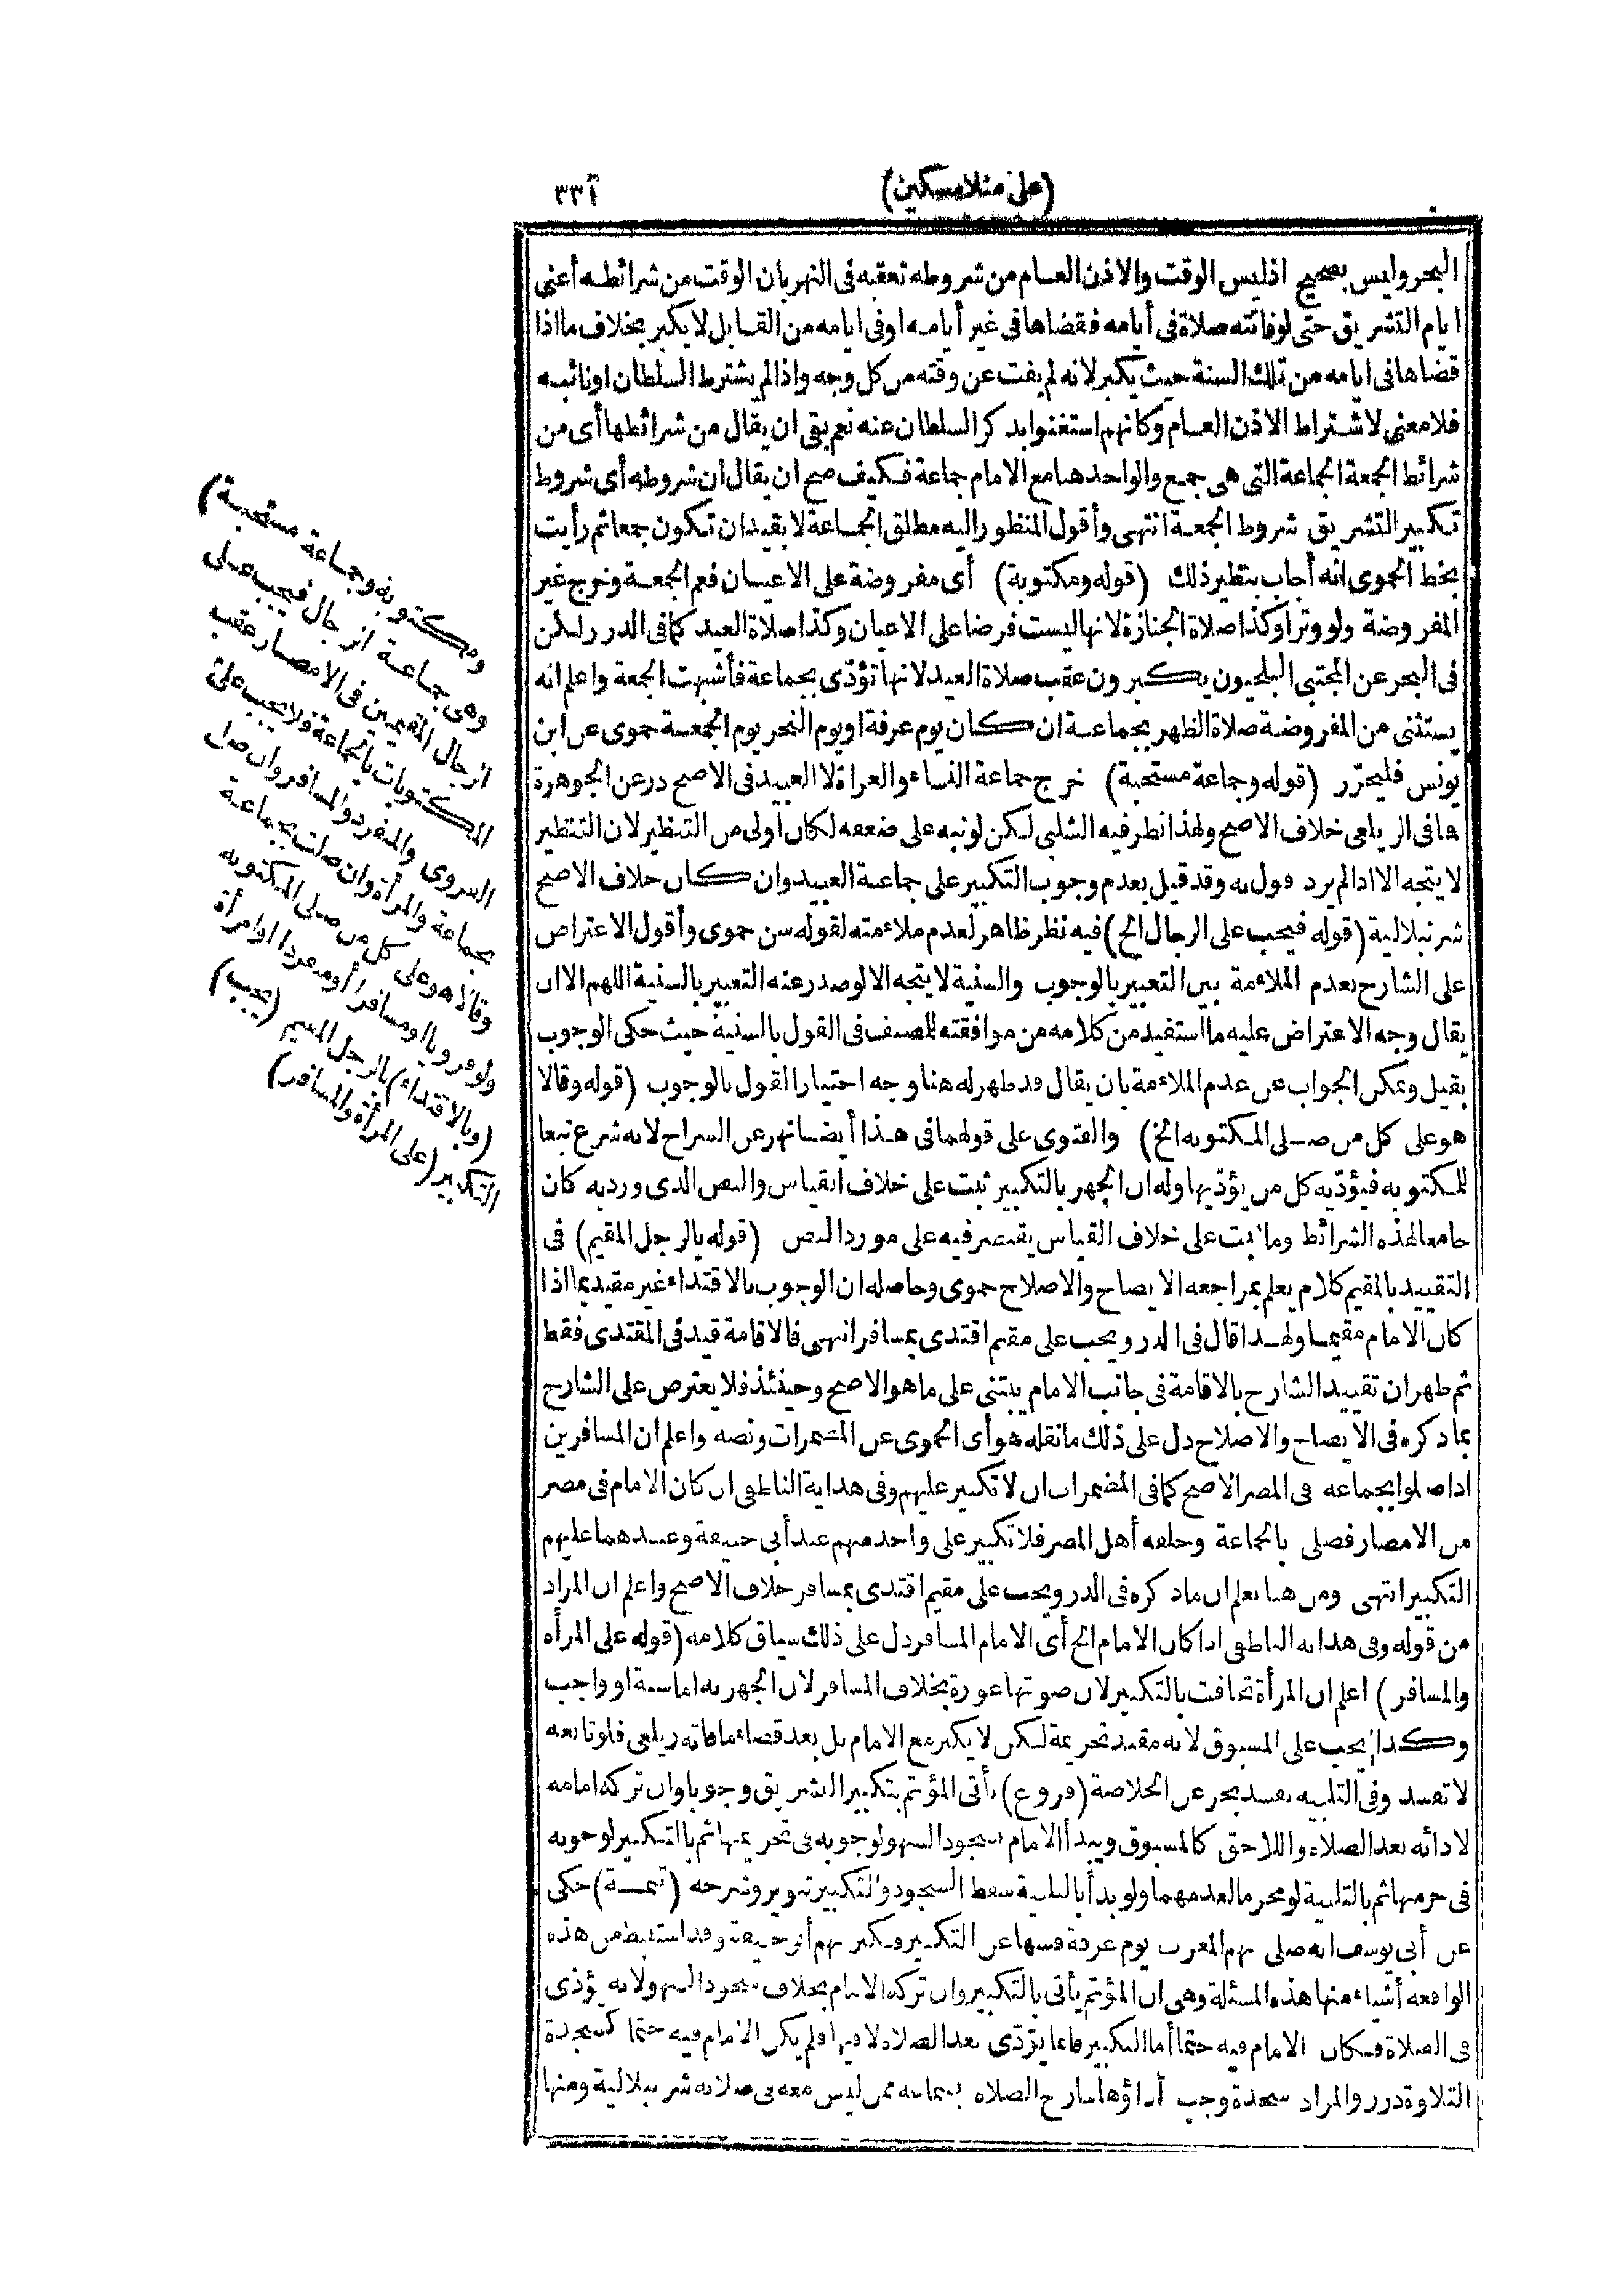 (على منلا مسكين)
٣٣١
البحر وليس بصحيح اذ ليس الوقت والاذن العام من شروطه تعقبه فى النهر بان الوقت من شرائطه أعنى
ايام التشريق حتى لو فاتته صلاة فى أيامه فقضاها فى غير أيامه او فى ايامه من القابل لا يكبر بخلاف ما اذا
قضاها فى ايامه من تلك السنة حيث يكبر لانه لم يفت عن وقته من كل وجه واذا لم يشترط السلطان او نائبه
فلا معنى لاشتراط الاذن العام وكانهم استغنوا بذكر السلطان عنه نعم بقى ان يقال من شرائطها أى من
شرائط الجمعة الجماعة التى هى جمع والواحد هنا مع الامام جماعة فكيف صح ان يقال ان شروطه أى شروط
تكبير التشريق شروط الجمعة انتهى وأقول المنظور اليه مطلق الجماعة لا بقيد ان تكون جمعا ثم رأيت
بخط الحموى انه أجاب بنظير ذلك (قوله ومكتوبة) أى مفروضة على الاعيان فعم الجمعة وخرج غير
المفروضة ولو وترا وكذا صلاة الجنازة لانها ليست فرضا على الاعيان وكذا صلاة العيد كما فى الدرر لكن
فى البحر عن المجتبى البلخيون يكبرون عقب صلاة العيد لانها تؤدّى بجماعة فأشبهت الجمعة واعلم انه
يستثنى من المفروضة صلاة الظهر بجماعة ان كان يوم عرفة او يوم النحر يوم الجمعة حموى عن ابن
يونس فليحرّر (قوله وجماعة مستحبة) خرج جماعة النساء والعراة لا العبيد فى الاصح در عن الجوهرة
فما فى الزيلعى خلاف الاصح ولهذا نظر فيه الشلبى لكن لو نبه على ضعفه لكان أولى من التنظير لان التنظير
لا يتجه الا اذا لم يرد قول به وقد قيل بعدم وجوب التكبير على جماعة العبيد وان كان خلاف الاصح
شرنبلالية (قوله فيجب على الرجال الخ) فيه نظر ظاهر لعدم ملاءمته لقوله سن حموى وأقول الاعتراض
على الشارح بعدم الملاءمة بين التعبير بالوجوب والسنية لا يتجه الا لو صدر عنه التعبير بالسنية اللهم الا ان
يقال وجه الاعتراض عليه ما استفيد من كلامه من موافقته للمصنف فى القول بالسنية حيث حكى الوجوب
بقيل ويمكن الجواب عن عدم الملاءمة بان يقال قد ظهر له هنا وجه اختيار القول بالوجوب (قوله وقالا
هو على كل من صلى المكتوبة الخ) والفتوى على قولهما فى هذا أيضا نهر عن السراج لانه شرع تبعا
للمكتوبة فيؤدّيه كل من يؤدّيها وله ان الجهر بالتكبير ثبت على خلاف القياس والنص الذى ورد به كان
جامعا لهذه الشرائط وما ثبت على خلاف القياس يقتصر فيه على مورد النص (قوله بالرجل المقيم) فى
التقييد بالمقيم كلام يعلم بمراجعة الايضاح والاصلاح حموى وحاصله ان الوجوب بالاقتداء غير مقيد بما اذا
كان الامام مقيما ولهذا قال فى الدر ويجب على مقيم اقتدى بمسافر انتهى فالاقامة قيد فى المقتدى فقط
ثم ظهر ان تقييد الشارح بالاقامة فى جانب الامام يبتنى على ما هو الاصح وحينئذ فلا يعترض على الشارح
بما ذكره فى الايضاح والاصلاح دل على ذلك ما نقله هو أى الحموى عن المضمرات ونصه واعلم ان المسافرين
اذا صلوا بجماعة فى المصر الاصح كما فى المضمرات ان لا تكبير عليهم وفى هداية الناطفى ان كان الامام فى مصر
من الامصار فصلى بالجماعة وخلفه أهل المصر فلا تكبير على واحد منهم عند أبى حنيفة وعندهما عليهم
التكبير انتهى ومن هنا يعلم ان ما ذكره فى الدر ويجب على مقيم اقتدى بمسافر خلاف الاصح واعلم ان المراد
من قوله وفى هداية الناطفى اذا كان الامام الخ أى الامام المسافر دل على ذلك سياق كلامه (قوله على المرأة
والمسافر) اعلم ان المرأة تخافت بالتكبير لان صوتها عورة بخلاف المسافر لان الجهر به اما سنة او واجب
وكذا يجب على المسبوق لانه مقتد تحريمة لكن لا يكبر مع الامام بل بعد قضاء ما فاته زيلعى فلو تابعه
لا تفسد وفى التلبية تفسد بحر عن الخلاصة (فروع) يأتى المؤتم بتكبير التشريق وجوبا وان تركه امامه
لادائه بعد الصلاة واللاحق كالمسبوق ويبدأ الامام بسجود السهو لوجوبه فى تحريمتها ثم بالتكبير لوجوبه
فى حرمتها ثم بالتلبية لو محرما لعدمهما ولو بدأ بالتلبية سقط السجود والتكبير تنوير وشرحه (تتمة) حكى
عن أبى يوسف انه صلى بهم المغرب يوم عرفة فسها عن التكبير فكبر بهم أبو حنيفة وقد استنبط من هذه
الواقعة أشياء منها هذه المسئلة وهى ان المؤتم يأتى بالتكبير وان تركه الامام بخلاف سجود السهو لانه يؤدّى
فى الصلاة فكان الامام فيه حتما أما التكبير فانما يؤدّى بعد الصلاة لا فيها فلم يكن الامام فيه حتما كسجدة
التلاوة درر والمراد سجدة وجب أداؤها خارج الصلاة بسماعه ممن ليس معه فى صلاته شرنبلالية ومنها
ومكتوبة وجماعة مستحبة)
وهى جماعة الرجال فيجب على
الرجال المقيمين فى الامصار عقب
المكتوبات بالجماعة فلا يجب على
القروى والمنفرد والمسافر وان صلى
بجماعة والمرأة وان صلت بجماعة
وقالا هو على كل من صلى المكتوبة
ولو قرويا او مسافرا أو منفردا او امرأة
(وبالاقتداء) بالرجل المقيم (يجب)
التكبير (على المرأة والمسافر)